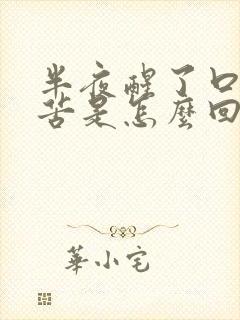 半夜醒了口
苦是怎麼回
華小宅